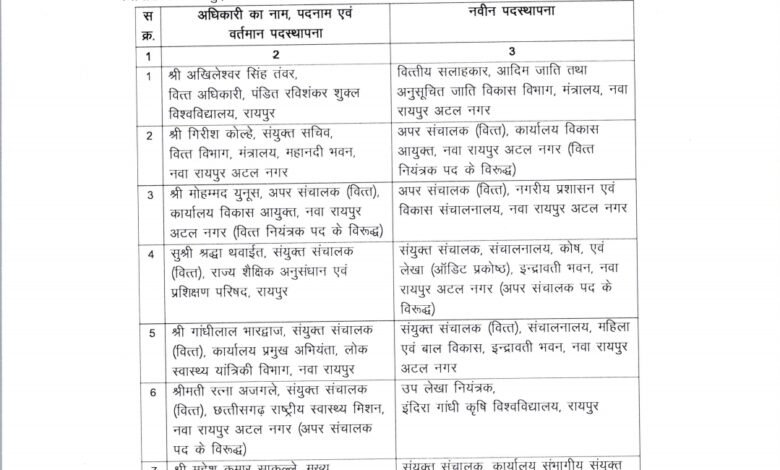 स
क्र.
अधिकारी का नाम, पदनाम एवं
वर्तमान पदस्थापना
नवीन पदस्थापना
1
2
3
1
श्री अखिलेश्वर सिंह तंवर,
वित्त अधिकारी, पंडित रविशंकर शुक्ल
विश्वविद्यालय, रायपुर
वित्तीय सलाहकार, आदिम जाति तथा
अनुसूचित जाति विकास विभाग, मंत्रालय, नवा
रायपुर अटल नगर
2
श्री गिरीश कोल्हे, संयुक्त सचिव,
वित्त विभाग, मंत्रालय, महानदी भवन,
नवा रायपुर अटल नगर
अपर संचालक (वित्त), कार्यालय विकास
आयुक्त, नवा रायपुर अटल नगर (वित्त
नियंत्रक पद के विरूद्ध)
3
श्री मोहम्मद युनूस, अपर संचालक (वित्त),
कार्यालय विकास आयुक्त, नवा रायपुर
अटल नगर (वित्त नियंत्रक पद के विरूद्ध)
अपर संचालक (वित्त), नगरीय प्रशासन एवं
विकास संचालनालय, नवा रायपुर अटल नगर
4
सुश्री श्रद्धा थवाईत, संयुक्त संचालक
(वित्त), राज्य शैक्षिक अनुसंधान एवं
प्रशिक्षण परिषद, रायपुर
संयुक्त संचालक, संचालनालय, कोष, एवं
लेखा (ऑडिट प्रकोष्ठ), इन्द्रावती भवन, नवा
रायपुर अटल नगर (अपर संचालक पद के
विरूद्ध)
5
श्री गांधीलाल भारद्वाज, संयुक्त संचालक
(वित्त), कार्यालय प्रमुख अभियंता, लोक
स्वास्थ्य यांत्रिकी विभाग, नवा रायपुर
संयुक्त संचालक (वित्त), संचालनालय, महिला
एवं बाल विकास, इन्द्रावती भवन, नवा रायपुर
अटल नगर
6
श्रीमती रत्ना अजगले, संयुक्त संचालक
(वित्त), छत्तीसगढ़ राष्ट्रीय स्वास्थ्य मिशन,
नवा रायपुर अटल नगर (अपर संचालक
पद के विरूद्ध)
उप लेखा नियंत्रक,
इंदिरा गांधी कृषि विश्वविद्यालय, रायपुर
7
श्री महेश कुमार साकल्ले, मुख्य
संयुक्त संचालक, कार्यालय संभागीय संयुक्त